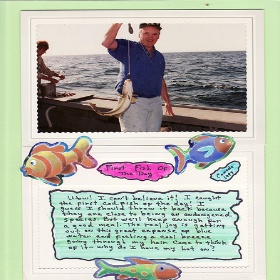 First Fish Of
The Day
Wow! I can't believe it! I caught
the first cod fish of the day! I
guess I should throw it back because
they are close to being an endangered
species. But we'll keep enough for
a good meal. The real joy is getting
out on this great expanse of blue
water and feeling the cool breeze
going through my hair. Come to think
of it why do I have my hat on?